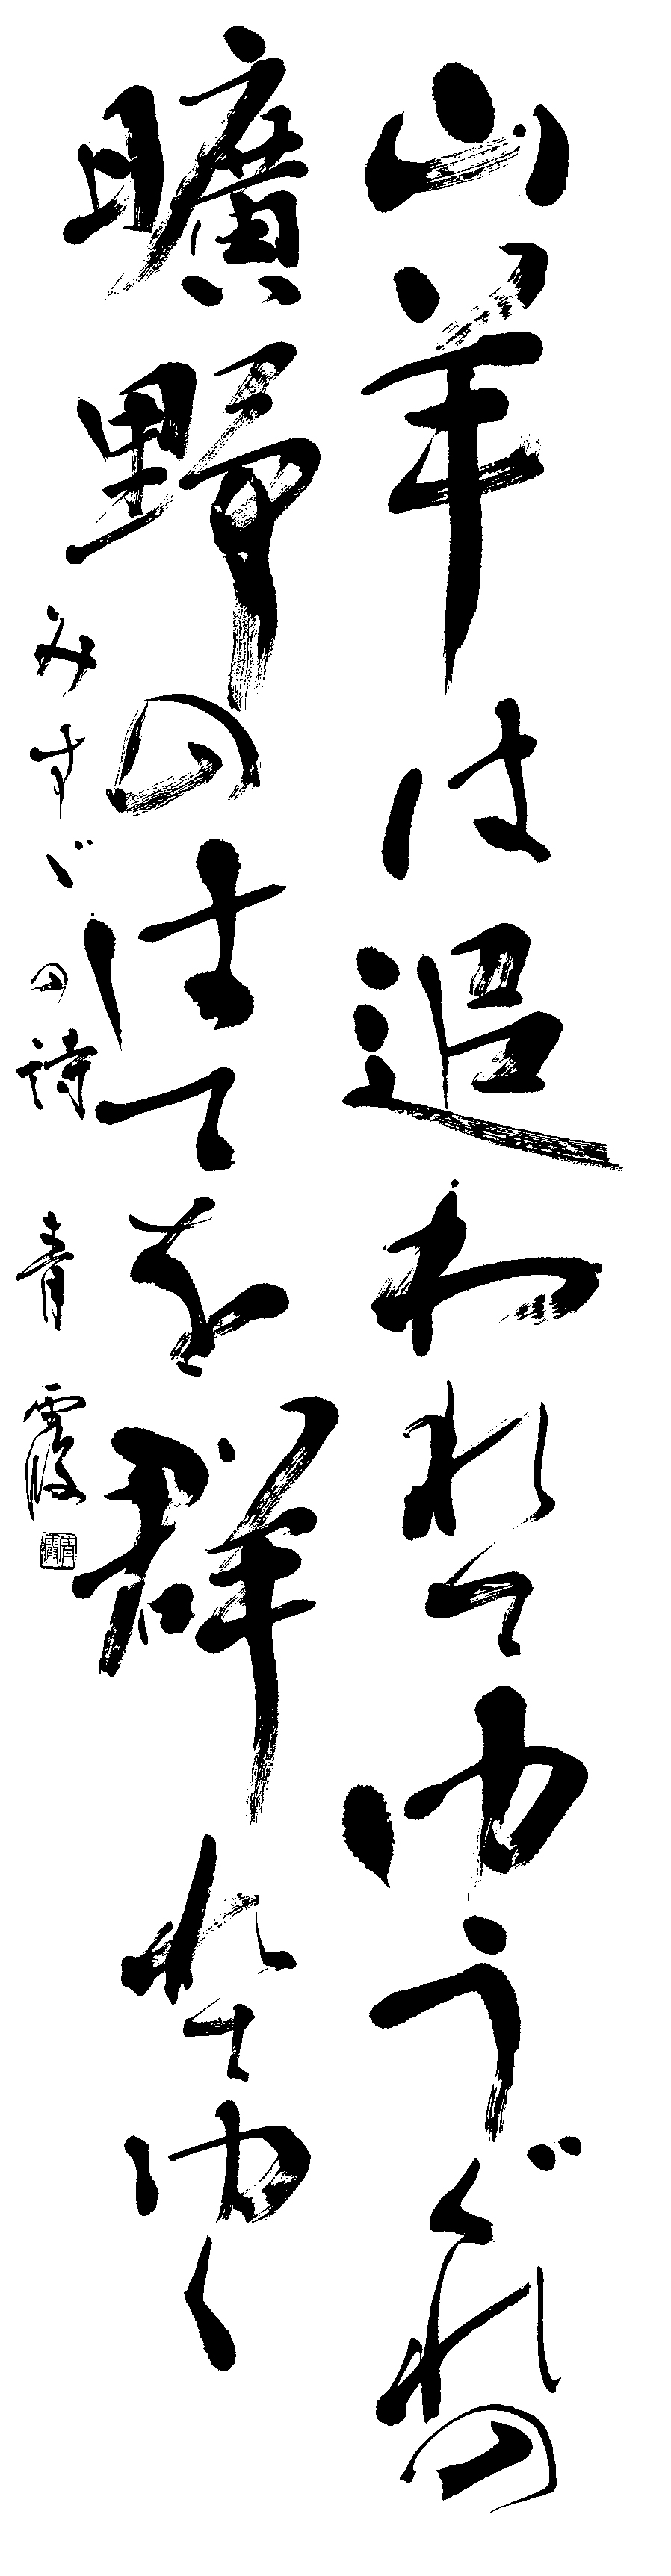 山羊は追われてゆうぐれの
曠野のはてを群れてゆく
みすゞの詩 青霞
青霞